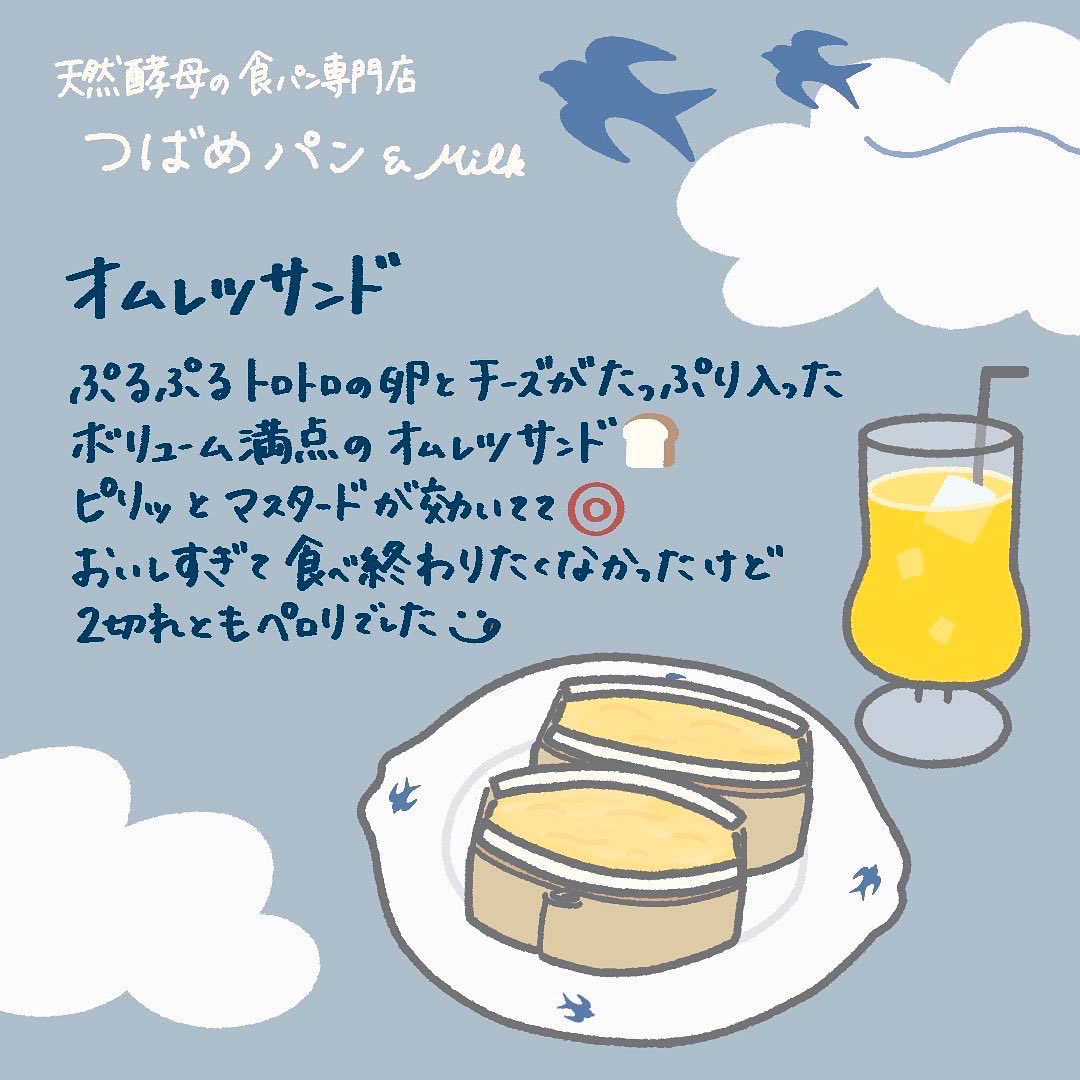 天然酵母の食パン専門店
つばめパン & Milk
オムレツサンド
ぷるぷるトロトロの卵とチーズがたっぷり入った
ボリューム満点のオムレツサンド
ピリッとマスタードが効いてて
おいしすぎて食べ終わりたくなかったけど
2切れともペロリでした